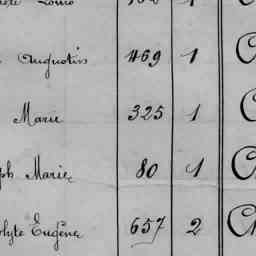 Augustin 469 1
Marie 325 1
ph Marie 80 1
olyte Eugène 657 2